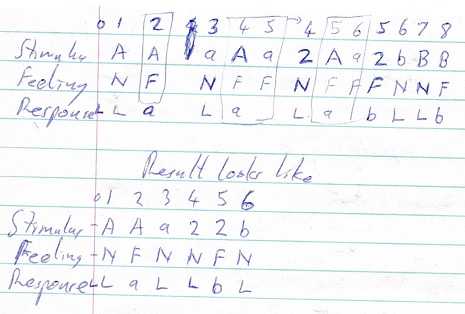 0 1 2 3 4 5 → 4 5 6 5 6 7 8
Stimulus A A a A a 2 A a 2 b B B
Feeling N F N F F N F F F N N F
Response L L a L a L a b L L b
Result looks like
0 1 2 3 4 5 6
Stimulus - A A a 2 2 b
Feeling - N F N N F N
Response L L a L L b L